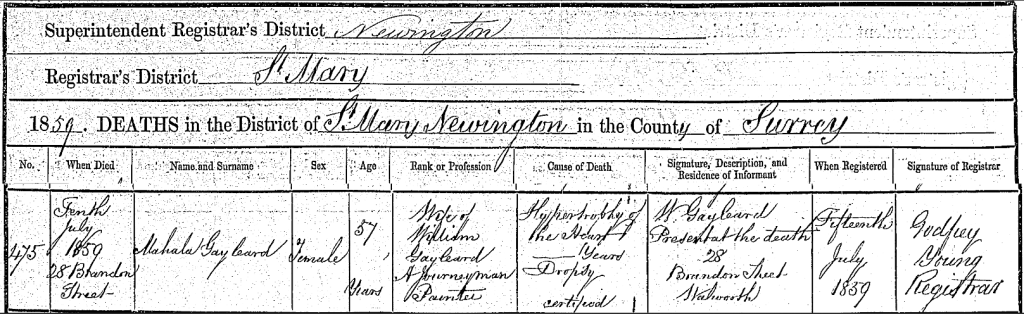 Superintendent Registrar's District Newington
Registrar's District St Mary
1859. DEATHS in the District of St Mary Newington in the County of Surrey
No. When Died Name and Surname Sex Age Rank or Profession Cause of Death Signature, Description, and Residence of Informant When Registered Signature of Registrar
475
Tenth
July
1859
28 Brandon
Street
Mahala Gayleard
Female
57
Years
Wife of
William
Gayleard
A Journeyman
Painter
Hypertrophy of
the Heart
Years
Dropsy
certified
W. Gayleard
Present at the death
28
Brandon Street
Walworth
Fifteenth
July
1859
Godfrey
Young
Registrar